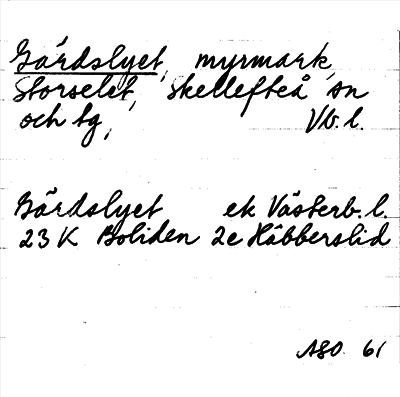 Gårdslyet, myrmark,
Storselet, Skellefteå sn
och tg, Vb. l.
Gårdslyet ek Västerb. l.
23 K Boliden 2e Häbberslid
ASO 61